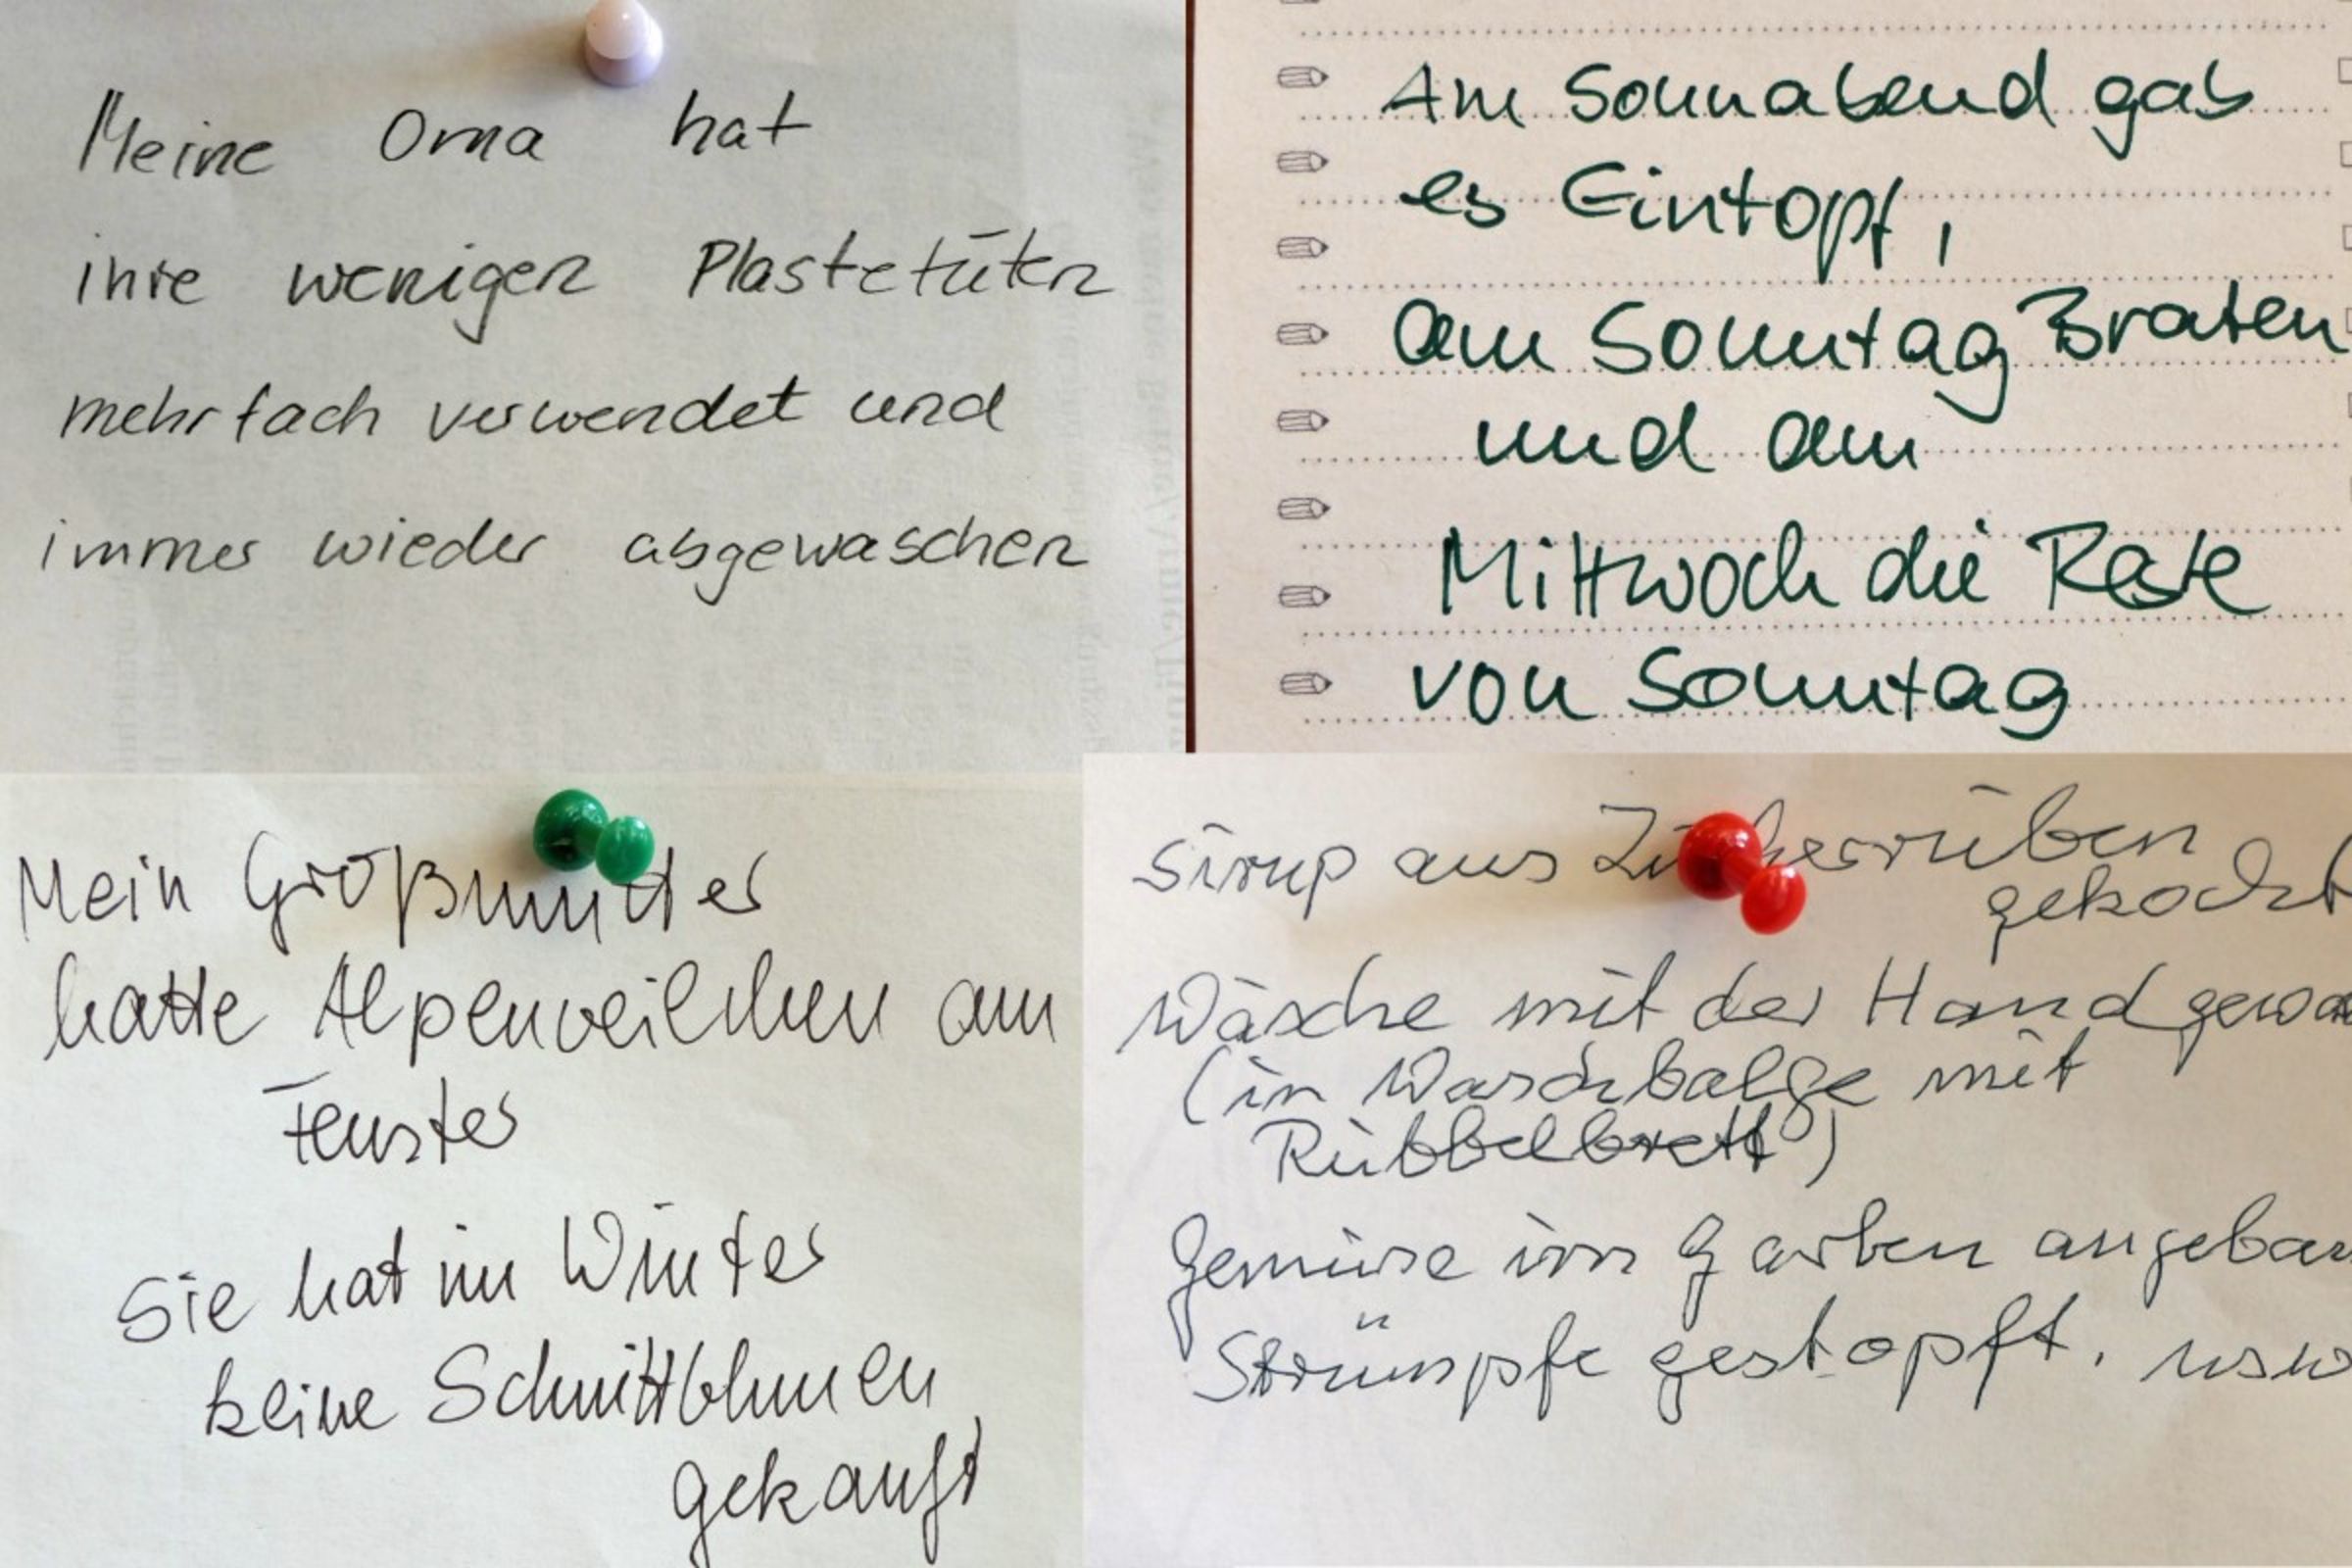 Meine Oma hat
ihre wenigen Plastetüten
mehrfach verwendet und
immer wieder abgewaschen
Am Sonnabend gab
es Eintopf,
am Sonntag Braten
und am
Mittwoch die Reste
von Sonntag
Mein Großmutter
hatte Alpenveilchen am
Fenster
Sie hat im Winter
keine Schnittblumen
gekauft
Sirup aus Zuckerrüben
gekocht
Wäsche mit der Hand gewa
(in Waschbalge mit
Rübbelbrett)
Gemüse im Garten angebau
Strümpfe gestopft, usw